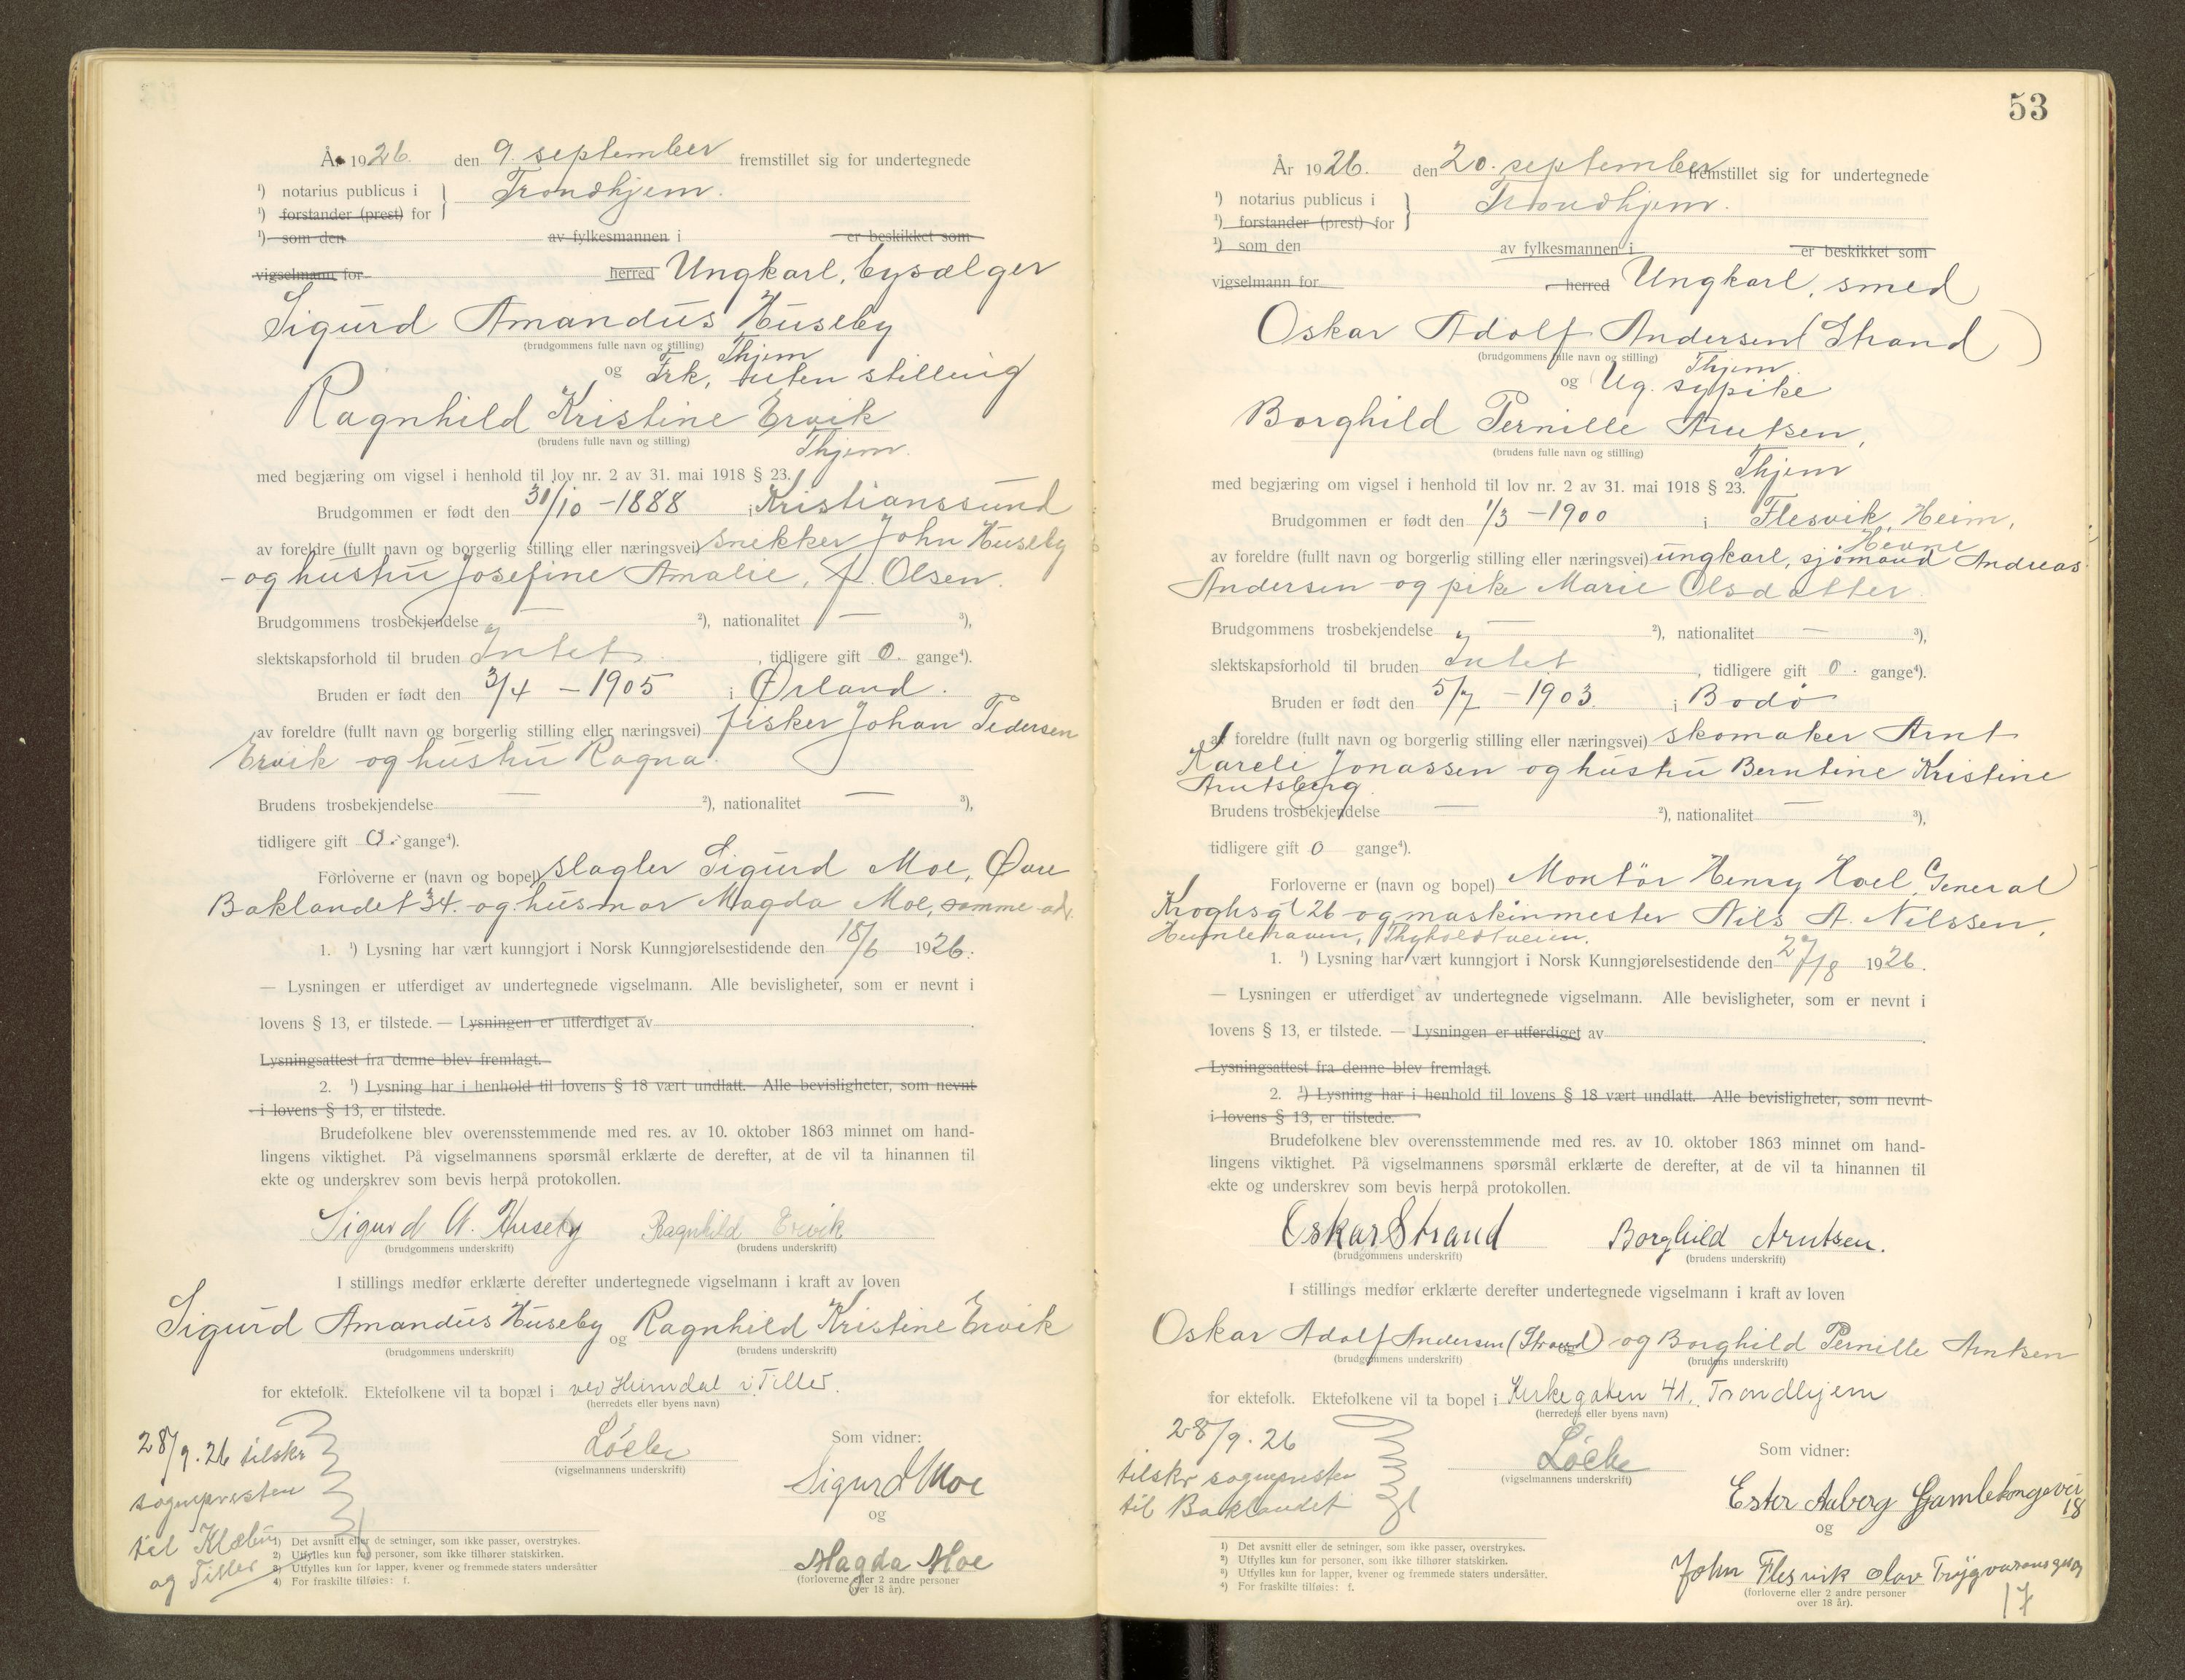 År 1926. den 9. september fremstillet sig for undertegnede
¹) notarius publicus i } Trondhjem.
¹) forstander (prest) for
¹) som den av fylkesmannen i er beskikket som
vigselmann for herred Ungkarl, bysælger
Sigurd Amandus Huseby
(brudgommens fulle navn og stilling) Thjem
og Frk, uten stilling
Ragnhild Kristine Ervik
(brudens fulle navn og stilling) Thjem.
med begjæring om vigsel i henhold til lov nr. 2 av 31. mai 1918 § 23.
Brudgommen er født den 31/10 - 1888 i Kristianssund
av foreldre (fullt navn og borgerlig stilling eller næringsvei) snekker John Huseby
- og hustru Josefine Amalie, f. Olsen.
Brudgommens trosbekjendelse — ²), nationalitet — ³),
slektskapsforhold til bruden Intet , tidligere gift 0. gange⁴).
Bruden er født den 3/4 - 1905 i Ørland.
av foreldre (fullt navn og borgerlig stilling eller næringsvei) fisker Johan Pedersen
Ervik og hustru Ragna.
Brudens trosbekjendelse — ²), nationalitet — ³),
tidligere gift 0. gange⁴).
Forloverne er (navn og bopel) slagter Sigurd Moe, Øvre
Baklandet 34. og husmor Magda Moe, samme adr.
1. ¹) Lysning har vært kunngjort i Norsk Kunngjørelsestidende den 18/6 1926.
— Lysningen er utferdiget av undertegnede vigselmann. Alle bevisligheter, som er nevnt i
lovens § 13, er tilstede. — Lysningen er utferdiget av
Lysningsattest fra denne blev fremlagt.
2. ¹) Lysning har i henhold til lovens § 18 vært undlatt. Alle bevisligheter, som nevnt
i lovens § 13, er tilstede.
Brudefolkene blev overensstemmende med res. av 10. oktober 1863 minnet om hand-
lingens viktighet. På vigselmannens spørsmål erklærte de derefter, at de vil ta hinannen til
ekte og underskrev som bevis herpå protokollen.
Sigurd A. Huseby Ragnhild Ervik
(brudgommens underskrift) (brudens underskrift)
I stillings medfør erklærte derefter undertegnede vigselmann i kraft av loven
Sigurd Amandus Huseby og Ragnhild Kristine Ervik
(brudgommens underskrift) (brudens underskrift)
for ektefolk. Ektefolkene vil ta bopæl i ved Heimdal i Tiller.
(herredets eller byens navn)
28/9. 26 tilskr
sognepresten
til Klæbu
og Tiller
Löcke
(vigselmannens underskrift)
Som vidner:
Sigurd Moe
og
Magda Moe
(forloverne eller 2 andre personer
over 18 år).
¹) Det avsnitt eller de setninger, som ikke passer, overstrykes.
²) Utfylles kun for personer, som ikke tilhører statskirken.
³) Utfylles kun for lapper, kvener og fremmede staters undersåtter
⁴) For fraskilte tilføies: f.
53
År 1926. den 20. september fremstillet sig for undertegnede
¹) notarius publicus i } Trondhjem.
¹) forstander (prest) for
¹) som den av fylkesmannen i er beskikket som
vigselmann for herred Ungkarl, smed
Oskar Adolf Andersen (Strand)
(brudgommens fulle navn og stilling) Thjem.
og Ug. sypike
Borghild Pernille Arntsen,
(brudens fulle navn og stilling) Thjem
med begjæring om vigsel i henhold til lov nr. 2 av 31. mai 1918 § 23.
Brudgommen er født den 1/3 - 1900 i Flesvik, Heim,
Hevne
av foreldre (fullt navn og borgerlig stilling eller næringsvei) ungkarl, sjömand Andreas
Andersen og pike Marie Olsdatter.
Brudgommens trosbekjendelse — ²), nationalitet — ³),
slektskapsforhold til bruden Intet , tidligere gift 0. gange⁴).
Bruden er født den 5/7 - 1903. i Bodö
av foreldre (fullt navn og borgerlig stilling eller næringsvei) skomaker Arnt
Kareli Jonassen og hustru Berntine Kristine
Arntsberg.
Brudens trosbekjendelse — ²), nationalitet — ³),
tidligere gift 0 gange⁴).
Forloverne er (navn og bopel) Montör Henry Hoel, General
Kroghsgt 26 og maskinmester Nils A. Nilssen,
Humlehaven, Thyholdtveien.
1. ¹) Lysning har vært kunngjort i Norsk Kunngjørelsestidende den 27/8 1926.
— Lysningen er utferdiget av undertegnede vigselmann. Alle bevisligheter, som er nevnt i
lovens § 13, er tilstede. — Lysningen er utferdiget av
Lysningsattest fra denne blev fremlagt.
2. ¹) Lysning har i henhold til lovens § 18 vært undlatt. Alle bevisligheter, som nevnt
i lovens § 13, er tilstede.
Brudefolkene blev overensstemmende med res. av 10. oktober 1863 minnet om hand-
lingens viktighet. På vigselmannens spørsmål erklærte de derefter, at de vil ta hinannen til
ekte og underskrev som bevis herpå protokollen.
Oskar Strand Borghild Arntsen.
(brudgommens underskrift) (brudens underskrift)
I stillings medfør erklærte derefter undertegnede vigselmann i kraft av loven
Oskar Adolf Andersen (Strand) og Borghild Pernille Arntsen
(brudgommens underskrift) (brudens underskrift)
for ektefolk. Ektefolkene vil ta bopel i Kirkegaten 41. Trondhjem
(herredets eller byens navn)
28/9. 26
tilskr sognepresten
til Baklandet
Löcke
(vigselmannens underskrift)
Som vidner:
Ester Aaberg Gamlekongevei
18
og
John Flesvik Olav Trygvasonsgt
17
(forloverne eller 2 andre personer
over 18 år).
¹) Det avsnitt eller de setninger, som ikke passer, overstrykes.
²) Utfylles kun for personer, som ikke tilhører statskirken.
³) Utfylles kun for lapper, kvener og fremmede staters undersåtter.
⁴) For fraskilte tilføies: f.